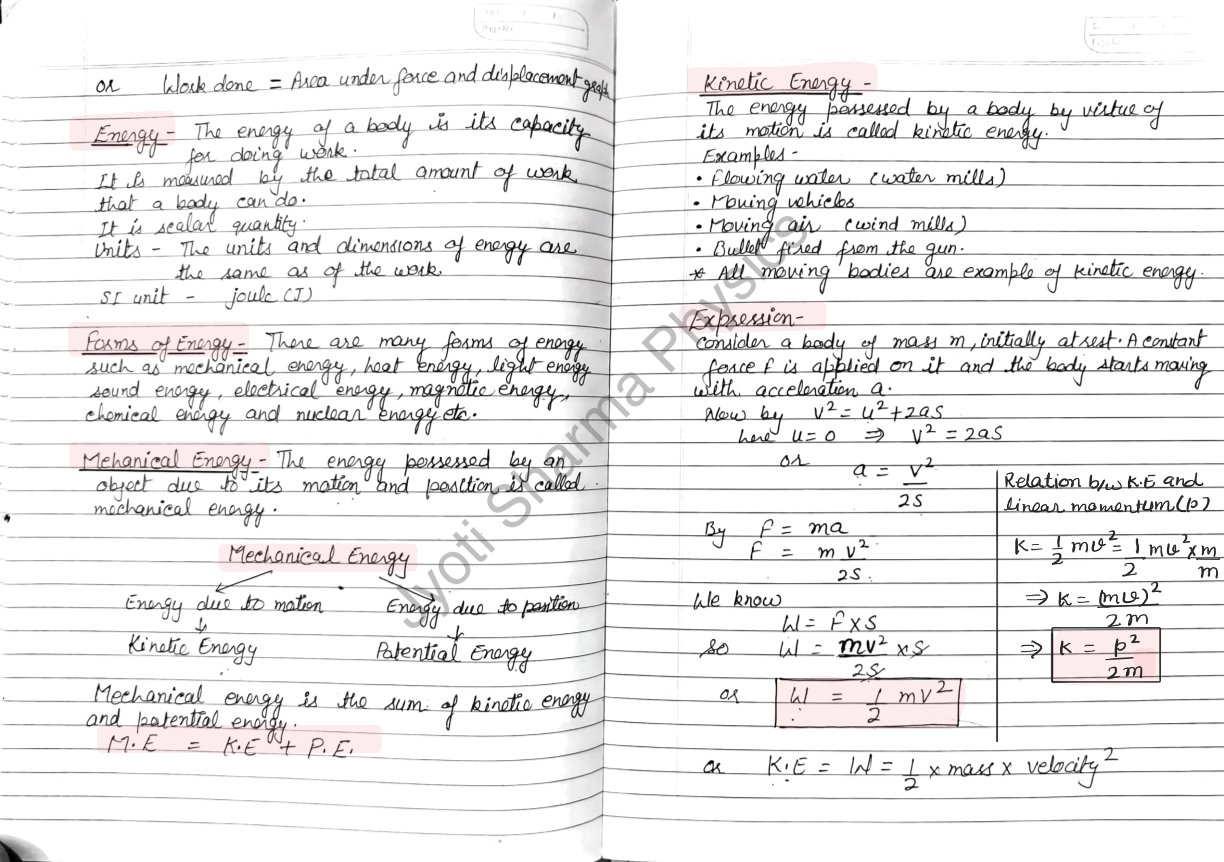 or Work done = Area under force and displacement graph
Energy - The energy of a body is its capacity
for doing work.
It is measured by the total amount of work
that a body can do.
It is scalar quantity.
Units - The units and dimensions of energy are
the same as of the work.
SI unit - joule (J)
Forms of Energy - There are many forms of energy
such as mechanical energy, heat energy, light energy
sound energy, electrical energy, magnetic energy,
chemical energy and nuclear energy etc.
Mehanical Energy - The energy possessed by an
object due to its motion and position is called
mechanical energy.
Mechanical Energy
Energy due to motion Energy due to position
↓ ↓
Kinetic Energy Potential Energy
Mechanical energy is the sum of kinetic energy
and potential energy.
M.E = K.E + P.E.
Kinetic Energy -
The energy possessed by a body by virtue of
its motion is called kinetic energy.
Examples -
• Flowing water (water mills)
• Moving vehicles
• Moving air (wind mills)
• Bullet fired from the gun.
* All moving bodies are example of kinetic energy.
Expression -
Consider a body of mass m, initially at rest. A constant
force F is applied on it and the body starts moving
with acceleration a.
Now by V² = u² + 2aS
here u = 0 ⇒ V² = 2aS
or a = V²/2S
By F = ma
F = m V²/2S.
We know
W = F × S
so W = mv²/2S × S
or W = 1/2 mV²
Relation b/w K.E and
linear momentum (p)
K = 1/2 mv² = 1/2 mv² × m/m
⇒ K = (mv)²/2m
⇒ K = p²/2m
or K.E = W = 1/2 × mass × velocity²
Jyoti Sharma Physics